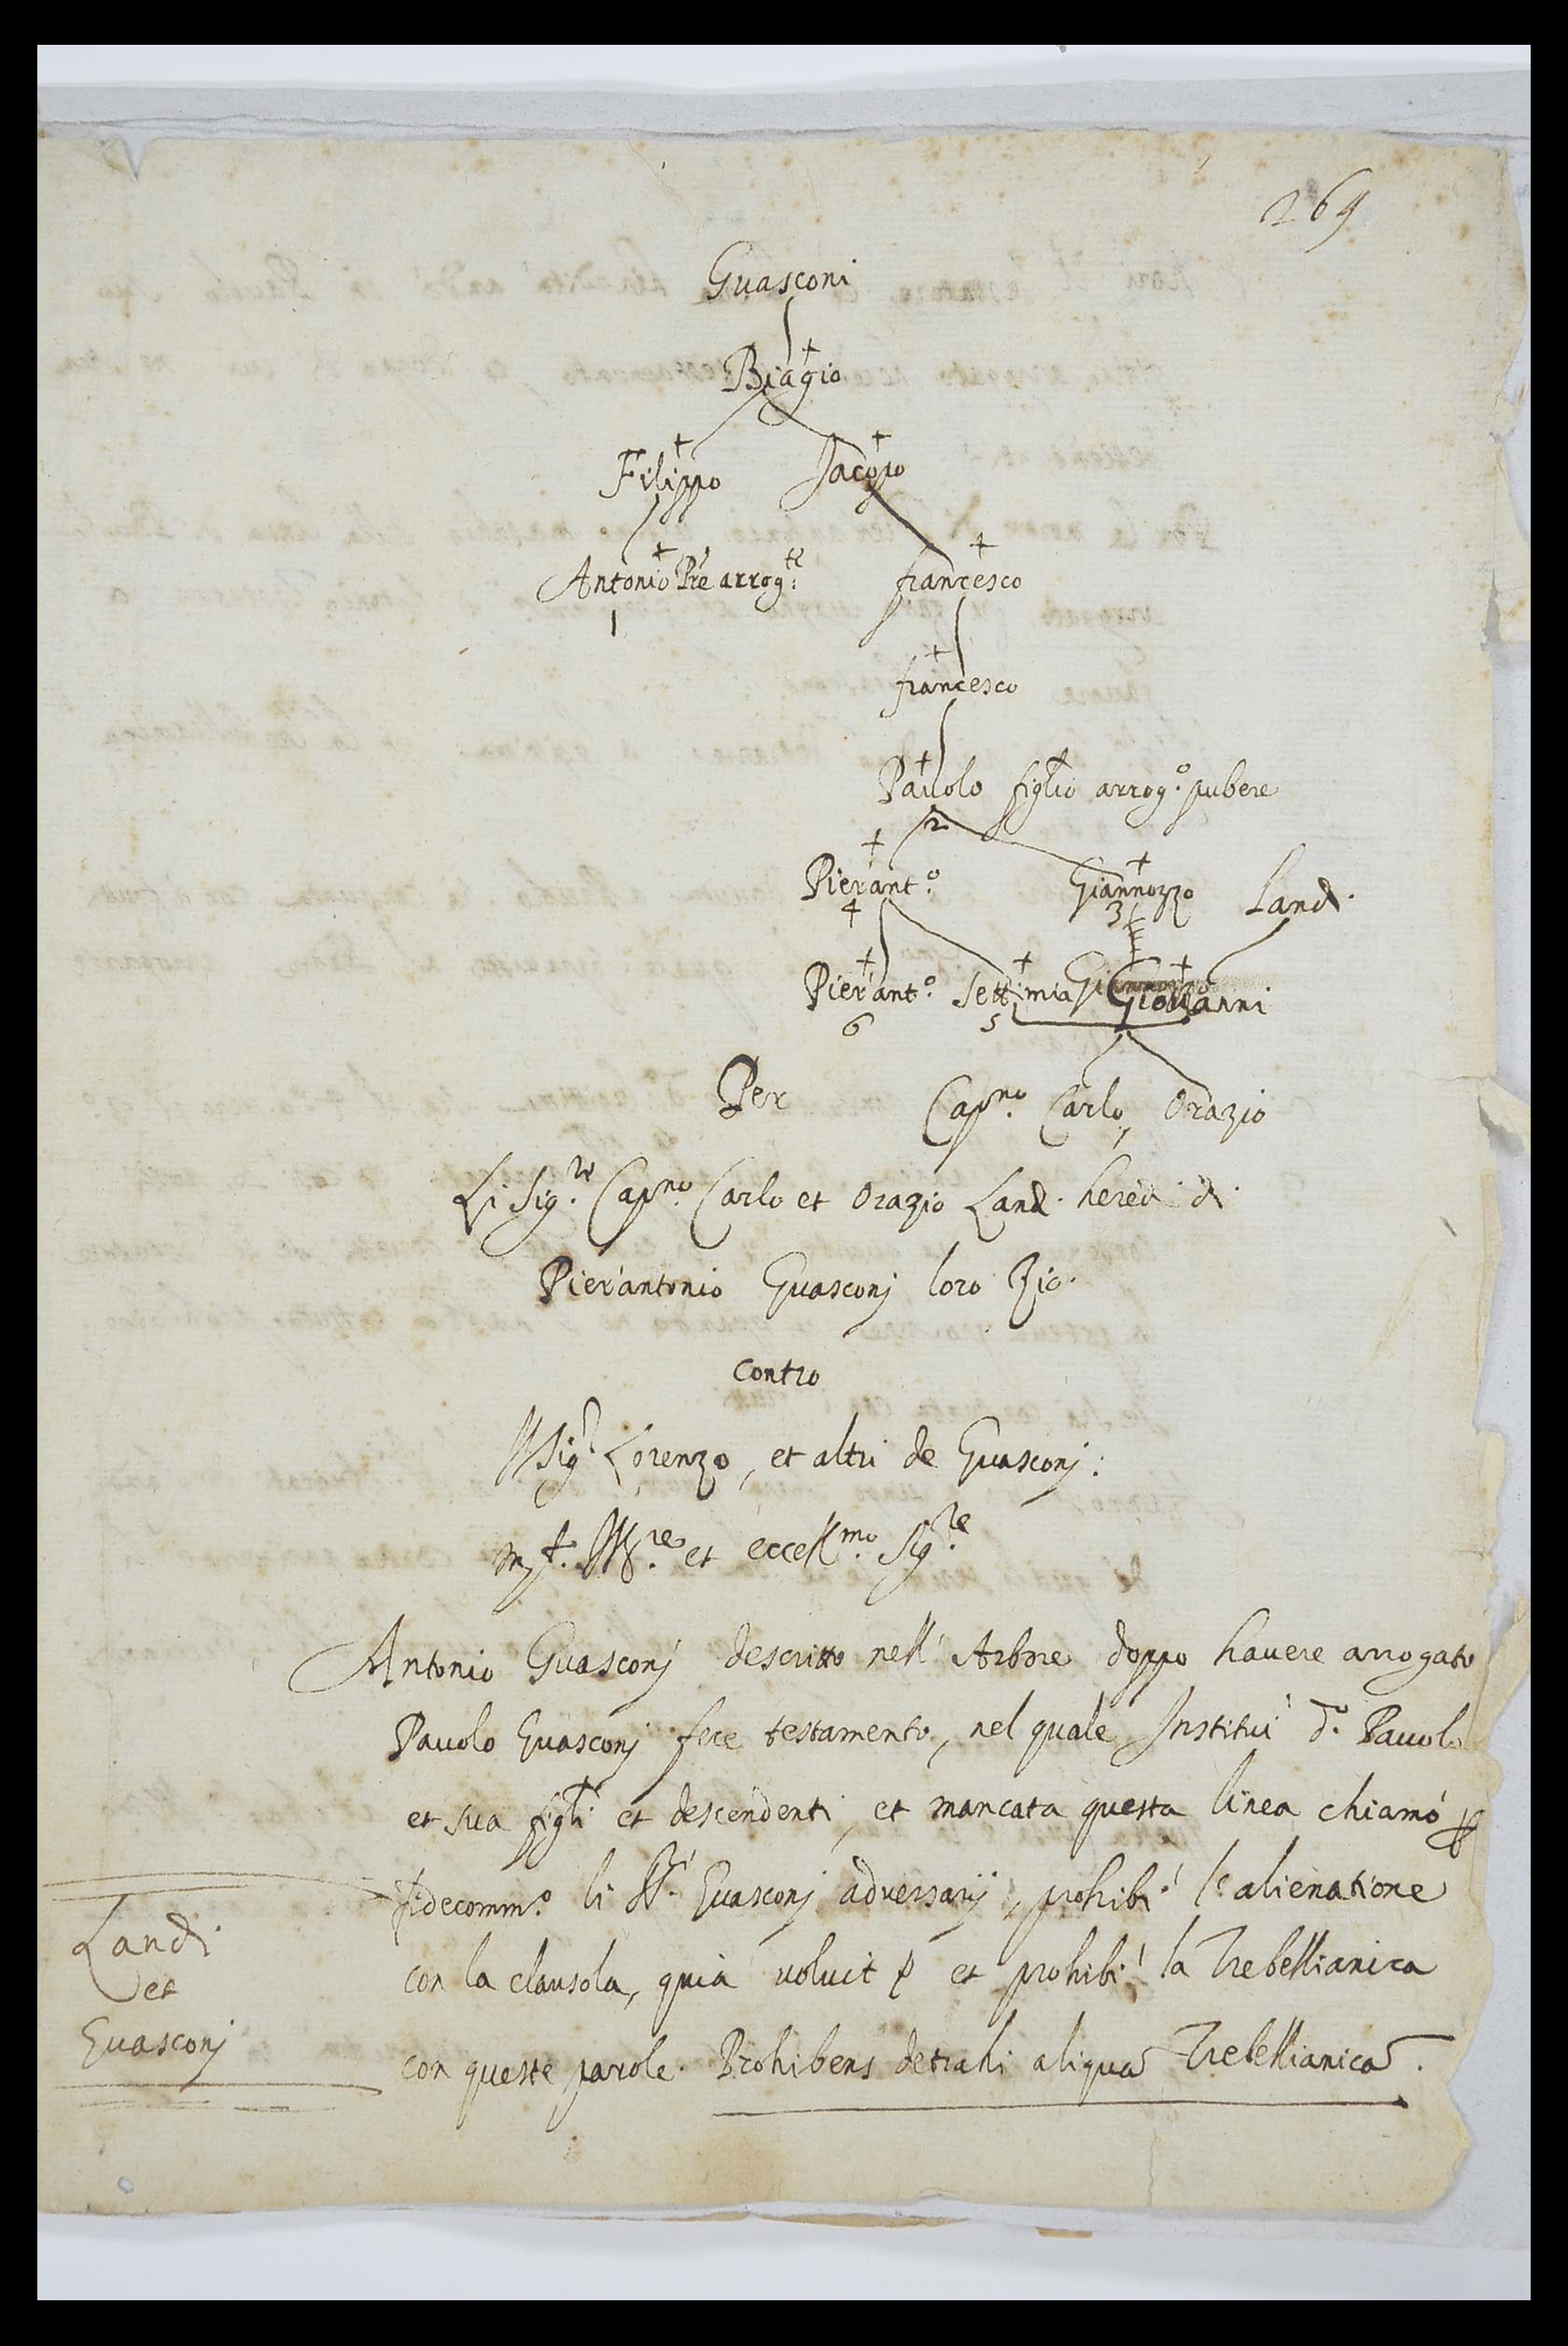 269
Guasconi
Biagio
Filippo Jacopo
Antonio Pre arrog.te francesco
1
francesco
Pauolo figlio arrog.o pubere
2
Pierant.o Giannozzo Land.
4 3
Pierant.o Settimia Giovanni
6 5
Per Cap.no Carlo, Orazio
Li Sig.re Cap.no Carlo et Orazio Land. hered. di
Pier'antonio Guasconj loro Zio.
contro
Ill Sig.r Lorenzo, et altri de Guasconj:
et eccell.mo Sig.re
Antonio Guasconj descritto nell' Arbore doppo havere arrogato
Pauolo Guasconj fece testamento, nel quale Instituì d.o Pauolo
et sua figli et descendenti, et mancata questa linea chiamò p
fidecomm.o li SS.ri Guasconj adversarij, prohibì l'alienatione
con la clausola, quia voluit p et prohibì la Trebellianica
con queste parole. Prohibens detrahi aliqua Trebellianica.
Landi
et
Guasconj